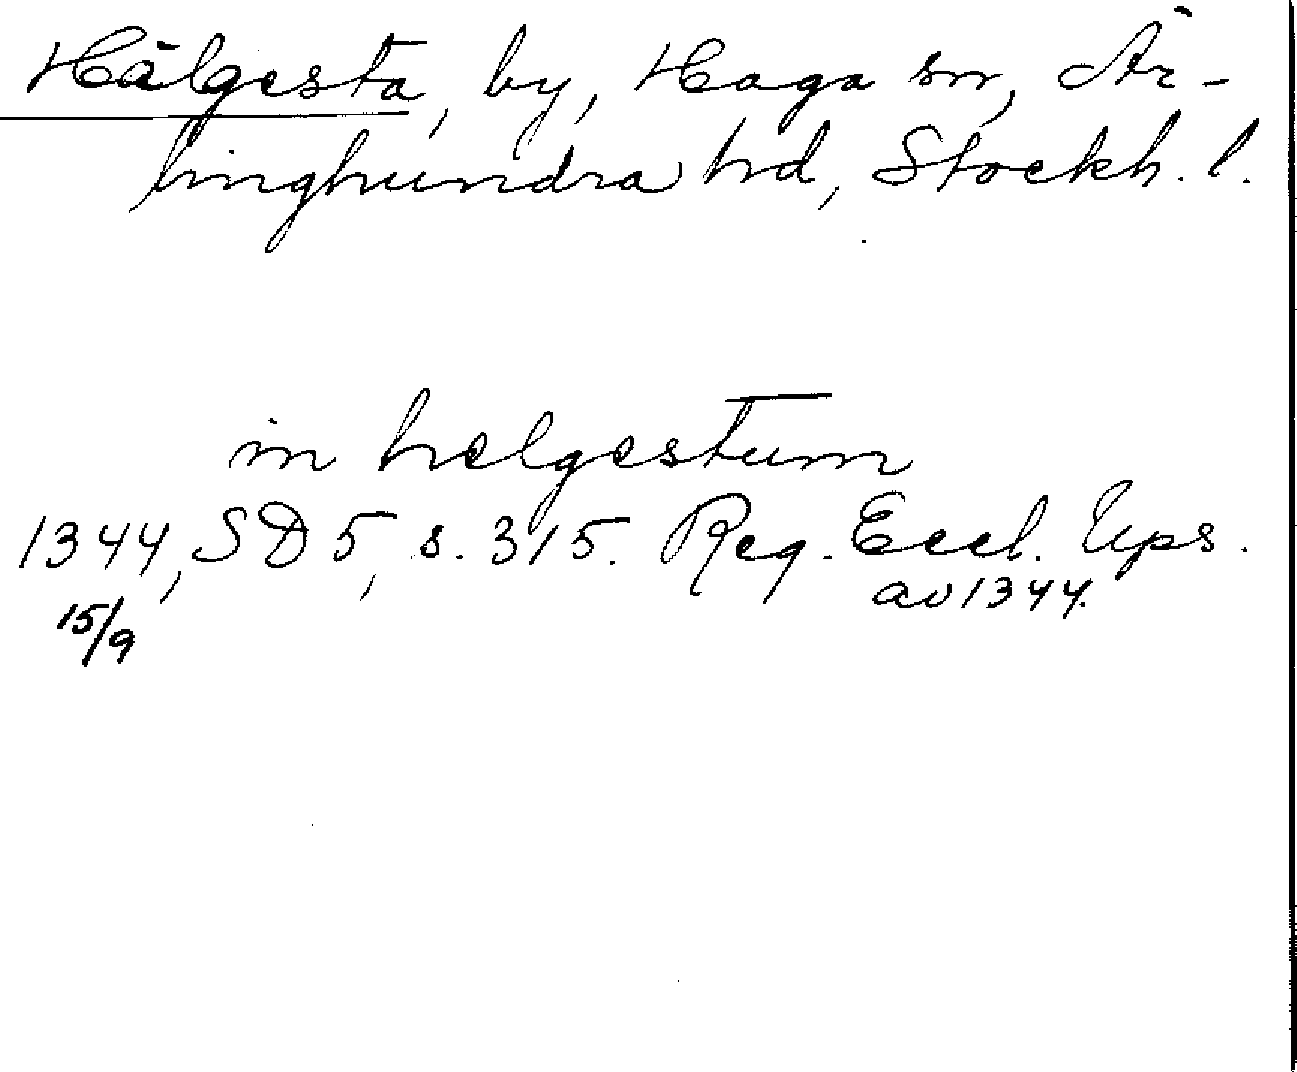 Hälgesta, by, Haga sn, Är-
linghundra hd, Stockh. l.
in helgestum
1344, SD 5, s. 315. Reg. Eccl. Ups.
av 1344.
15/9